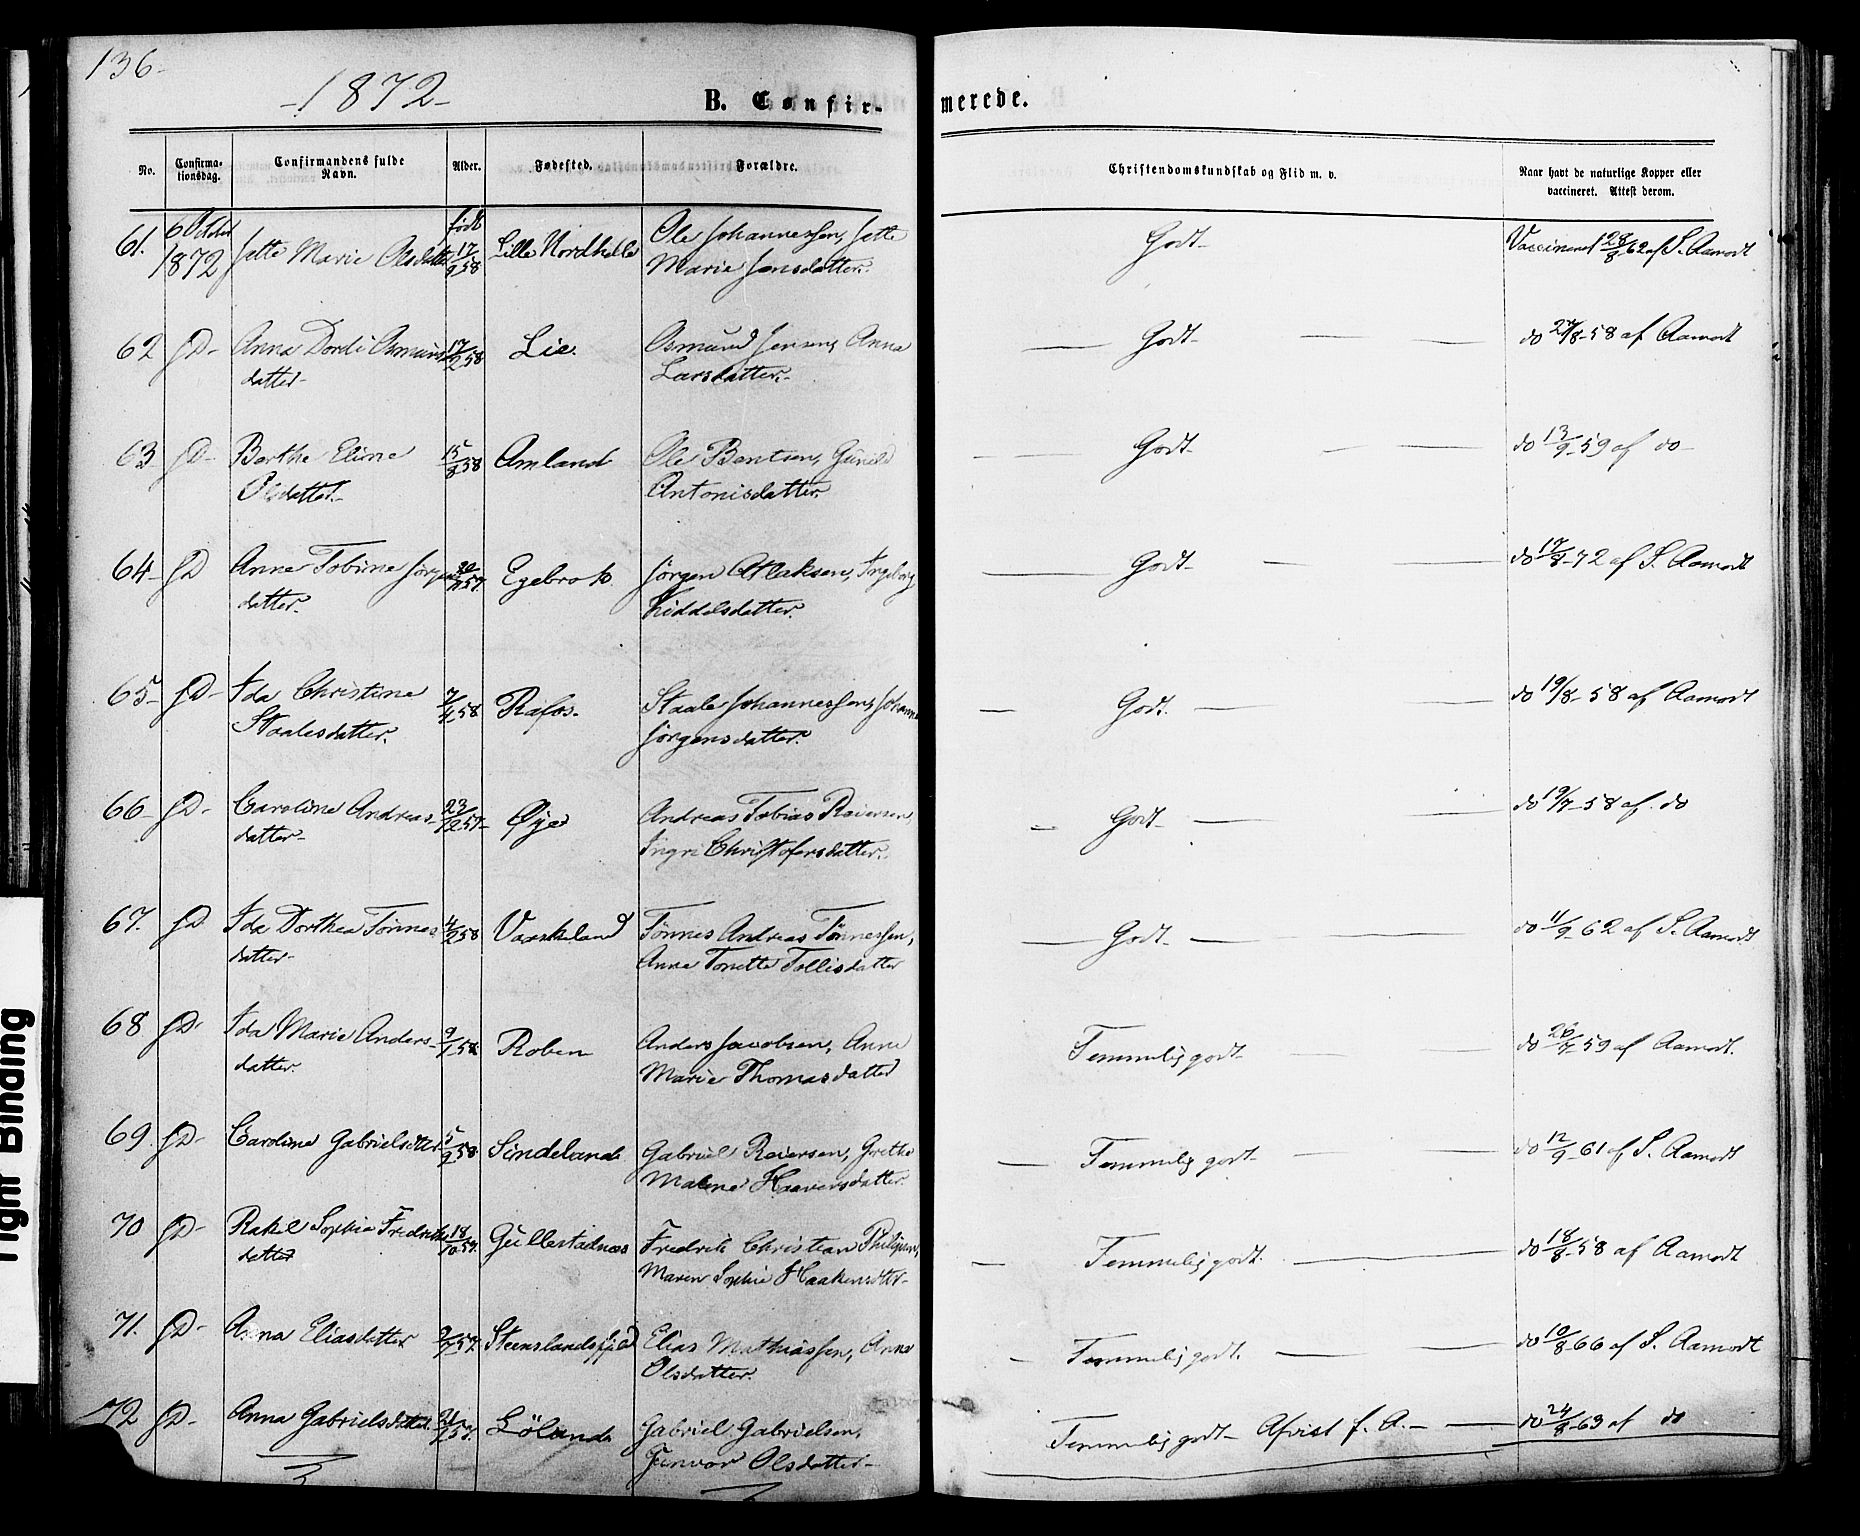 136-
-1872-
B. Confir-
merede.
No.
Confirma-
tionsdag.
Confirmandens fulde
Navn.
Alder.
Fødested.
Forældre.
Christendomskundskab og Flid m. v.
Naar havt de naturlige Kopper eller
vaccineret. Attest derom.
61. 6 October født Ole Johannessen, Jette Godt- Vaccineret 28/8 62 af S. Aamodt
1872 Jette Marie Olsdatter 17/9 58 Lille Nordhelle Marie Jensdatter.
62 JD- Anna Dordi Osmunds 17/2 58 Lie. Osmund Jensen, Anna — Godt- — — do 27/8-58 af Aamodt
datter- Larsdatter.-
63 JD- Berthe Eline 15/8 58 Amland Ole Bentsen, Gunild — Godt- — — do 13/9-59 af do-
Olsdatter.- Antonisdatter.
64- JD Anne Tobine Jørgens 57. Egebrok Jørgen Atlaksen, Ingeborg — Godt- — — do 17/8-72 af S. Aamodt
datter.- Kiddelsdatter.
65- JD- Ida Christine 7/4 58 Rafos- Staale Johannessen, Johanne — Godt. — — do 19/8-58 af Aamodt
Staalesdatter. Jørgensdatter.
66- JD- Caroline Andreas- 23/12 57- Øye Andreas Tobias Reiersen, — Godt- — — do 19/7-58 af. do
datter- Ingri Christofersdatter.
67. JD Ida Dorthea Tønnes 4/2 58 Vaskeland Tønnes Andreas Tønnessen, — Godt- — — do 11/9-62 af S. Aamodt
datter- Anne Tonette Tollisdatter
68 JD- Ida Marie Anders- 9/1 58 Roben Anders Jacobsen, Anne Temmelig godt- — do 26/7-59 af Aamodt.
datter. Marie Thomasdatter
69. JD- Caroline Gabrielsdtter 5/2 58 Sindeland Gabriel Reiersen, Grethe — Temmelig godt- — — do 12/9-61 af S. Aamodt
Malene Haaversdatter.
70 JD- Rakel Sophie Fredriks 18/10 57. Gullestadnæs Fredrik Christian Philipsen, — Temmelig godt. — do 18/8-58 af Aamodt
datter Maren Sophie Haakensdtter-
71. JD- Anna Eliasdatter 9/7 57. Steenslandsfjeld Elias Mathiassen, Anne - Temmelig godt. — — do 10/8-66 af S. Aamodt
Olsdatter.
72 JD- Anna Gabrielsdatter 57. Löland Gabriel Gabrielsen, Temmelig godt- Afvist f. A.- — do 24/8-63 af do
Gunvor Olsdatter-
Tight Binding